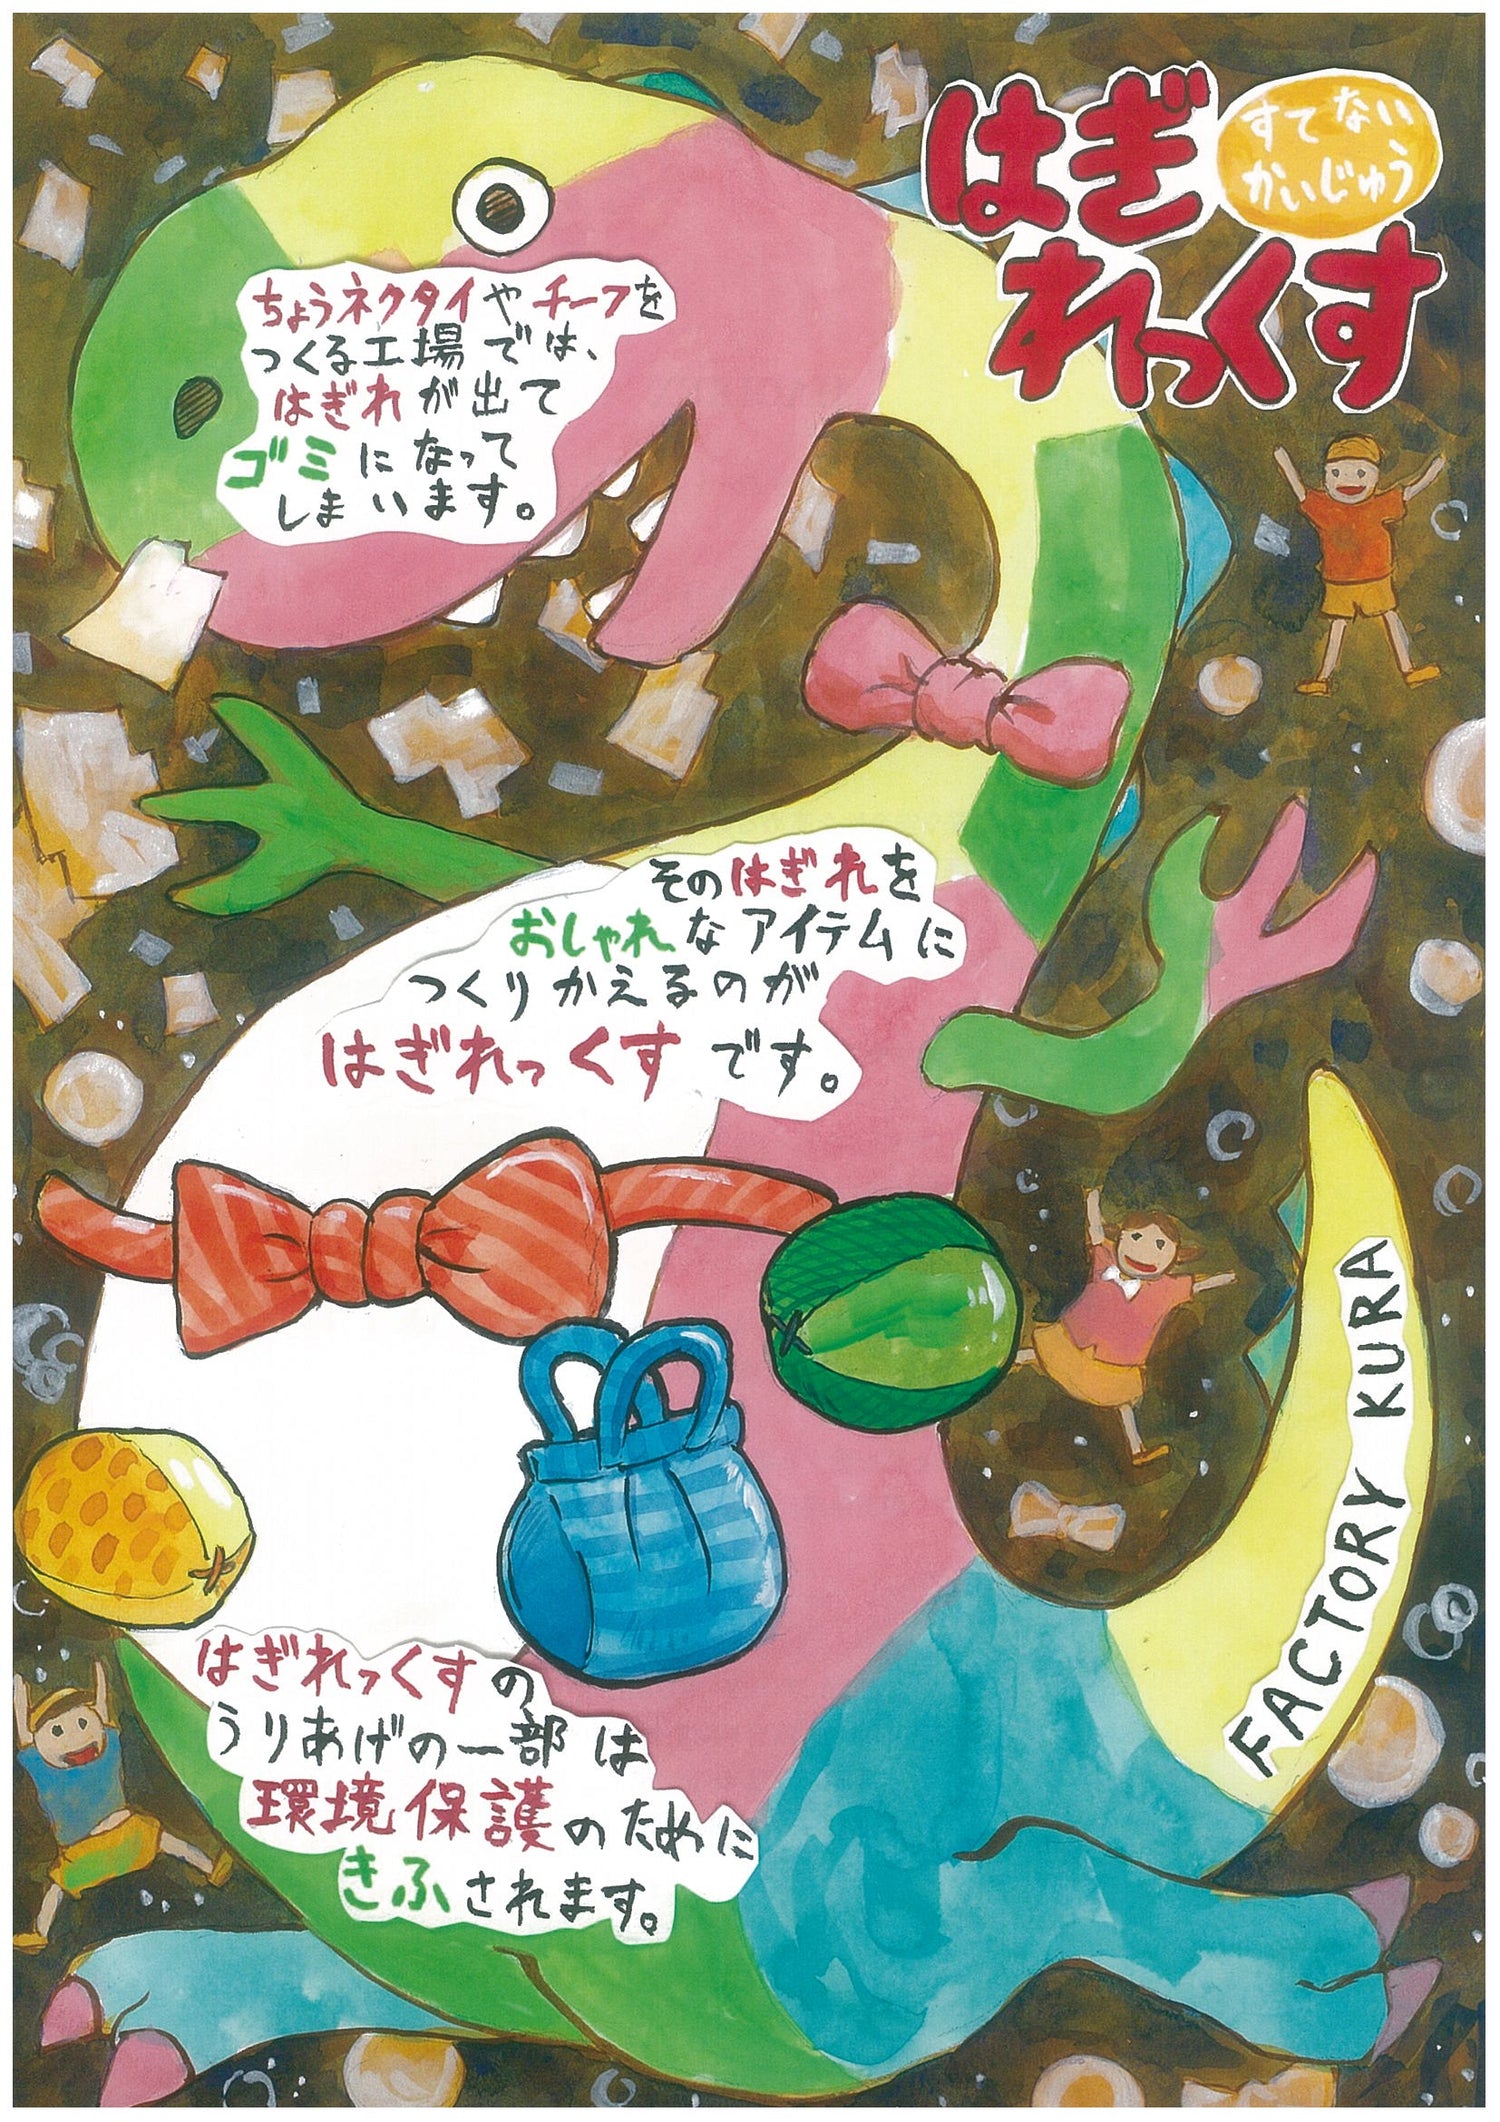 はぎ
れっくす
すてない
かいじゅう
ちょうネクタイやチーフを
つくる工場では、
はぎれが出て
ゴミになって
しまいます。
そのはぎれを
おしゃれなアイテムに
つくりかえるのが
はぎれっくすです。
はぎれっくすの
うりあげの一部は
環境保護のために
きふされます。
FACTORY KURA